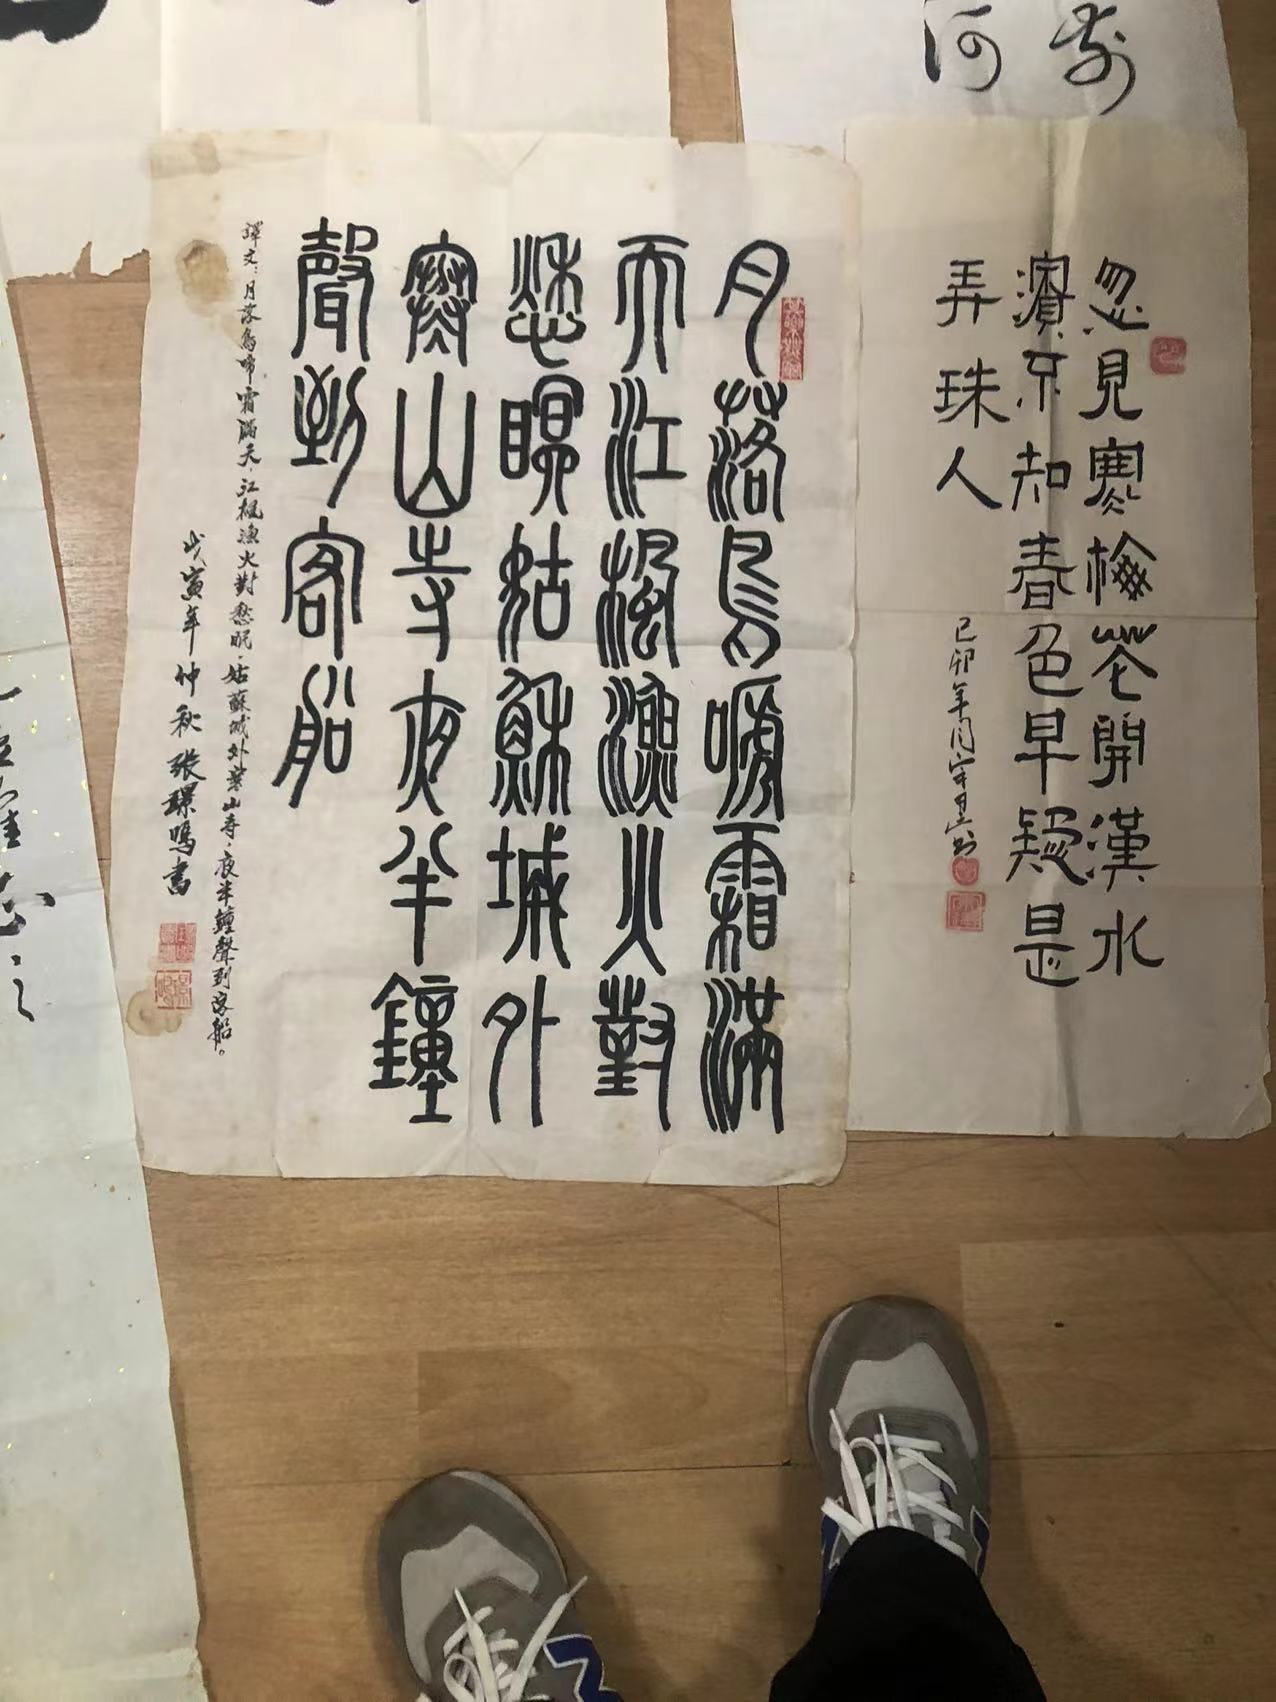 河
忽見寒梅花開漢水
濱不知春色早疑是
弄珠人
己卯年
月落烏嗁霜滿
天江楓漁火對
愁眠姑蘇城外
寒山寺夜半鐘
聲到客船
譯文：月落烏啼霜滿天，江楓漁火對愁眠，姑蘇城外寒山寺，夜半鐘聲到客船。
戊寅年仲秋張環鳴書